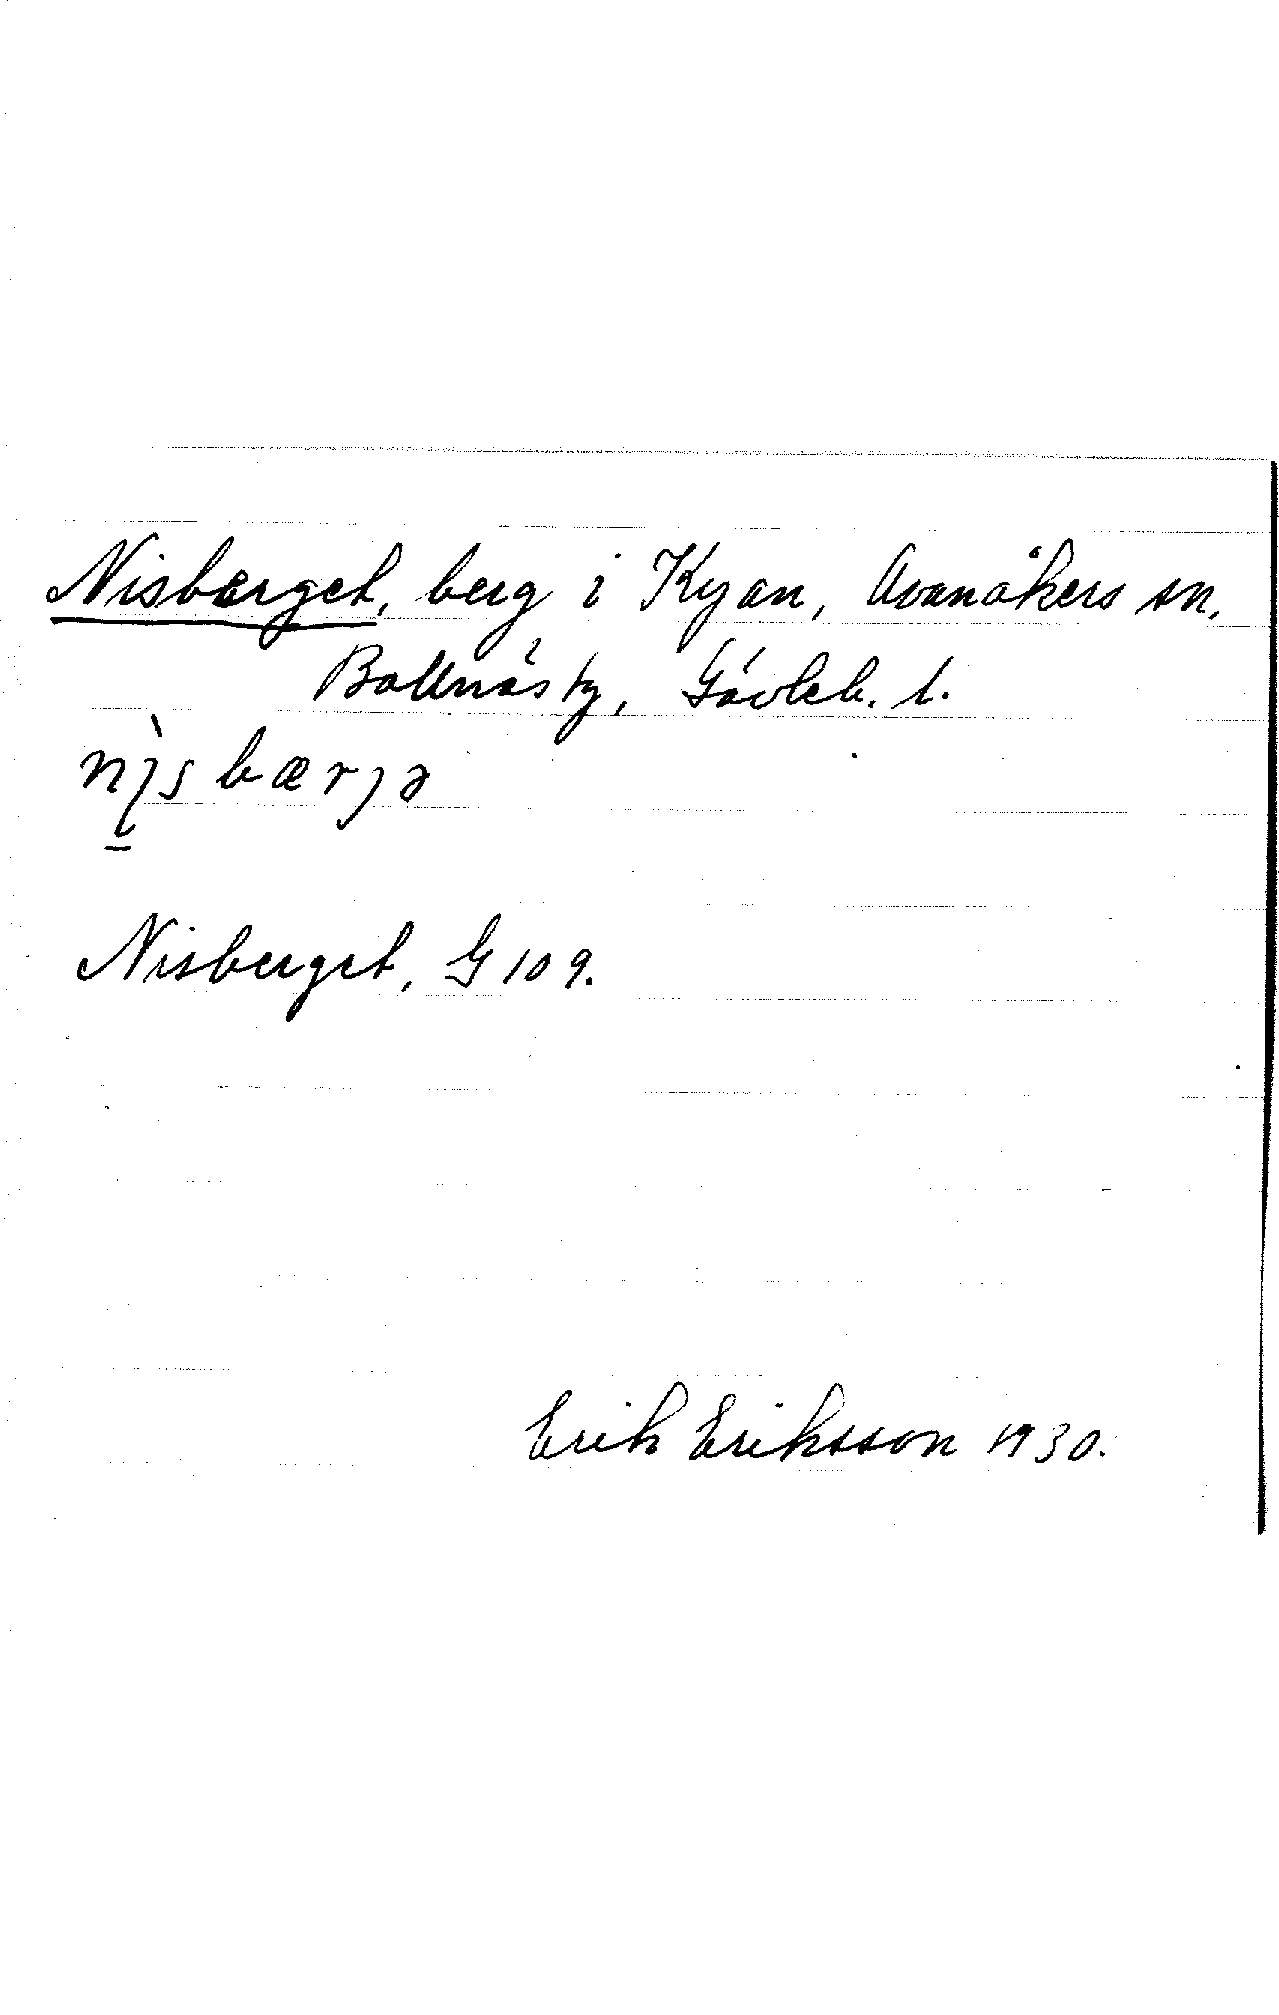 Nisberget, berg i Kyan, Ovanåkers sn,
Bollnäs tg, Gävleb. l.
Nisberget, G 109.
Erik Eriksson 1930.